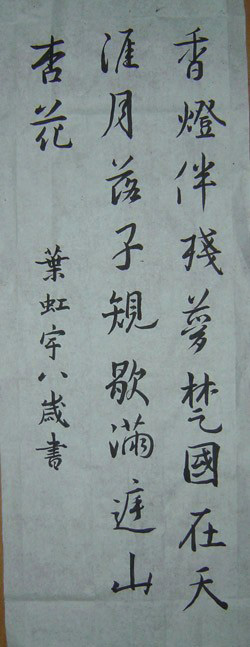 香燈伴殘夢楚國在天
涯月落子規歇滿庭山
杏花
葉虹宇八歲書